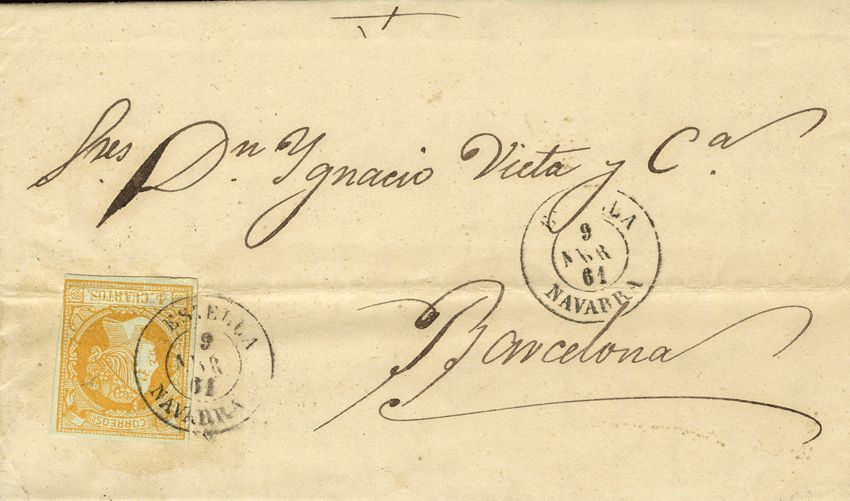 Sres Dn Ygnacio Vieta y Ca.
ESTELLA
9
ABR
61
NAVARRA
Barcelona
4 CUARTOS
CORREOS
ESTELLA
9
ABR
61
NAVARRA